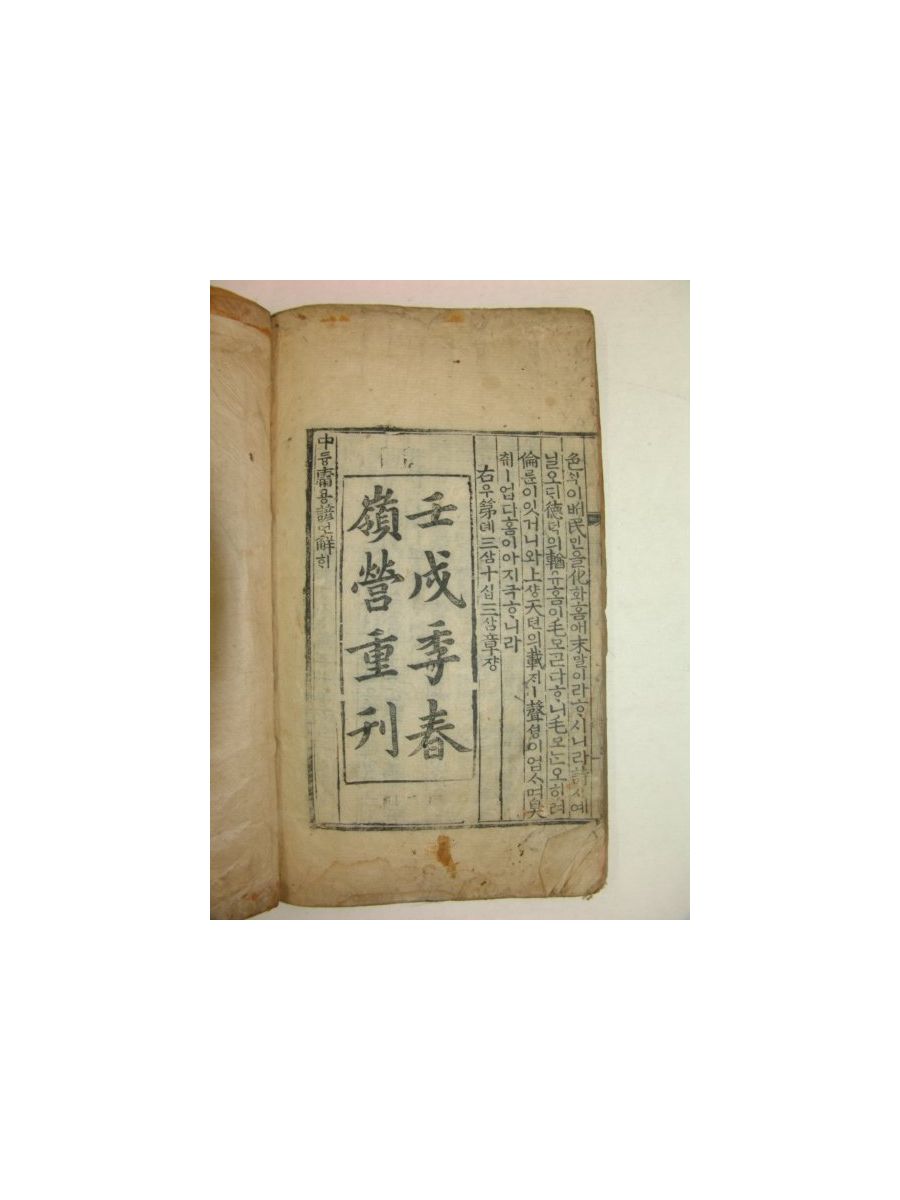 色ᄉᆡᆨ이배民민을化화홈애末말이라ᄒᆞ시니라詩시예
닐오ᄃᆡ德덕의輶유홈이毛모ᄀᆞᆮ다ᄒᆞ니毛모ᄂᆞᆫ오히려
倫륜이잇거니와上샹天텬의載ᄌᆡㅣ聲셩이업ᄉᆞ며臭
ᄎᆔㅣ업다홈이아지극ᄒᆞ니라
右우第뎨三삼十십三삼章쟝
壬戌季春
嶺營重刊
中듕庸용諺언解ᄒᆡ